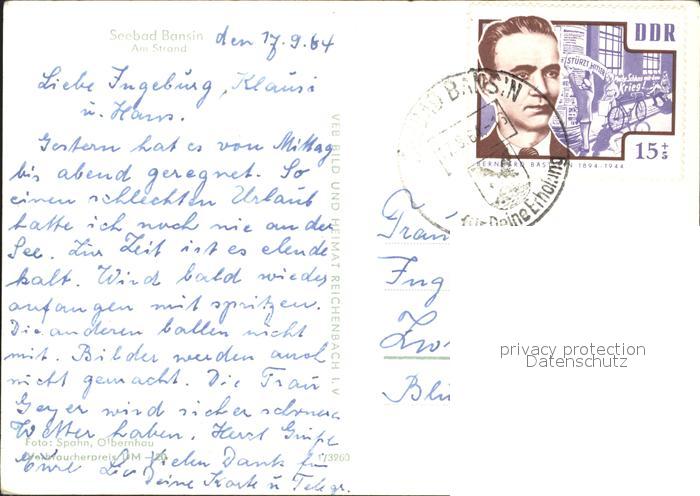 Seebad Bansin
Am Strand
den 17.9.64
Liebe Ingeburg, Klausi
u. Hans.
Gestern hat es von Mittag
bis abend geregnet. So
einen schlechten Urlaub
hatte ich noch nie an der
See. Zur Zeit ist es elende
kalt. Wird bald wieder
anfangen mit spritzen.
Die anderen ballen nicht
mit. Bilder werden auch
nicht gemacht. Die Frau
Geyer wird sicher schönere
Wetter haben. Herzl Grüße
Eure Vielen Dank für
Deine Karte u Telegr.
Foto: Spahn, Olbernhau
Verbraucherpreis DM -,20
1/3260
VEB BILD UND HEIMAT REICHENBACH I. V
DDR
STÜRZT HITLER
Macht Schluss mit dem
Krieg!
15+5
BERNHARD BÄSTLEIN 1894-1944
BAD BANSIN
für Deine Erholung
Frau
Ing
Zw
Bl
privacy protection
Datenschutz